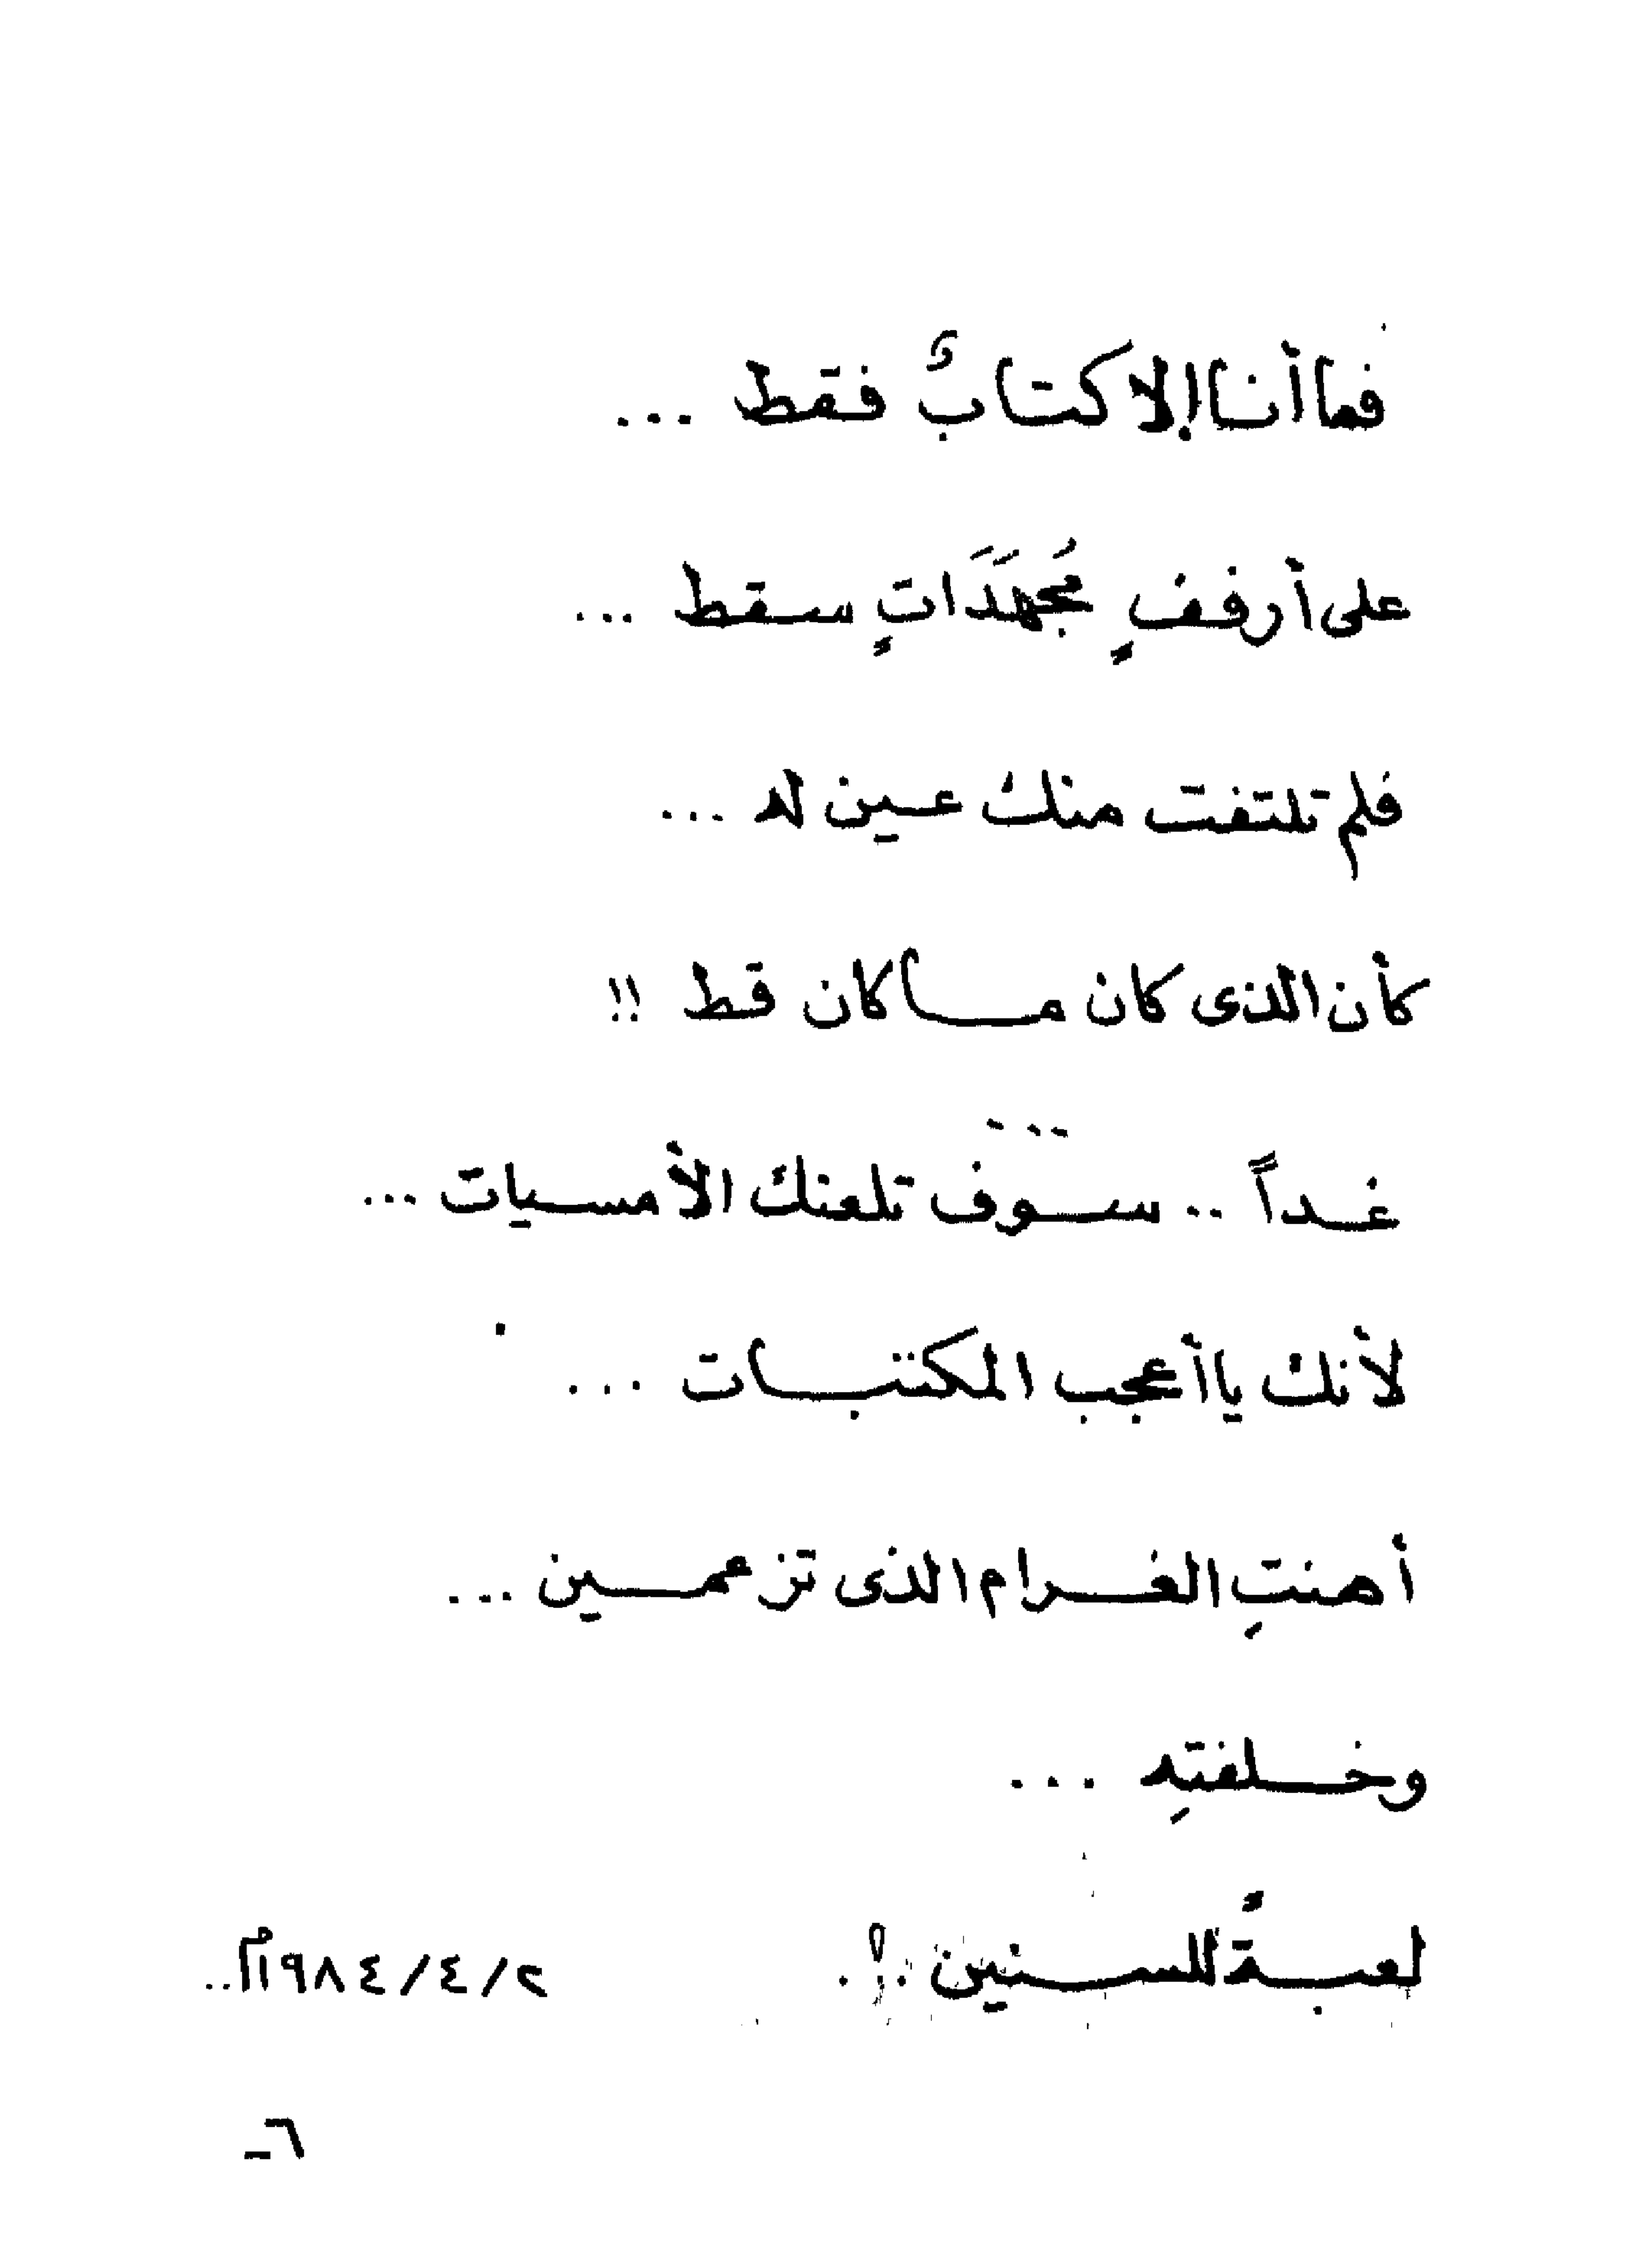 فما أنا إلا كتابٌ فقط ...
على أرففٍ مُجهَدَاتٍ سقط ...
فلم تلتفت منك عين له ...
كأن الذى كان ما كان قط !!
...
غداً .. سوف تلعنك الأمسيات ...
لأنك يا أعجب المكتبات ...
أهنتِ الغرام الذى تزعمين ...
وخلفتِه ...
لعبةً للسنين .!.
٢/٤/١٩٨٤م..
٦-